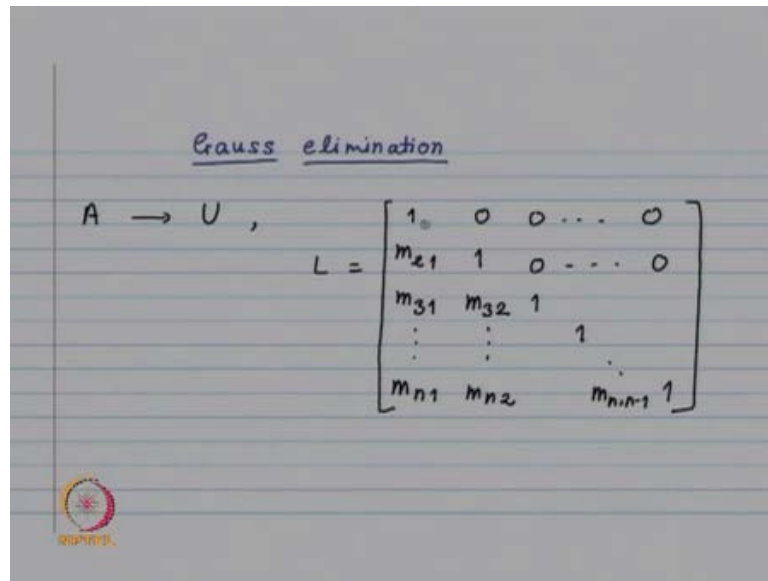 Gauss elimination
A → U , L =
1 0 0 ... 0
m21 1 0 - - - 0
m31 m32 1
⋮ ⋮ 1
mn1 mn2 ⋱ mn,n-1 1